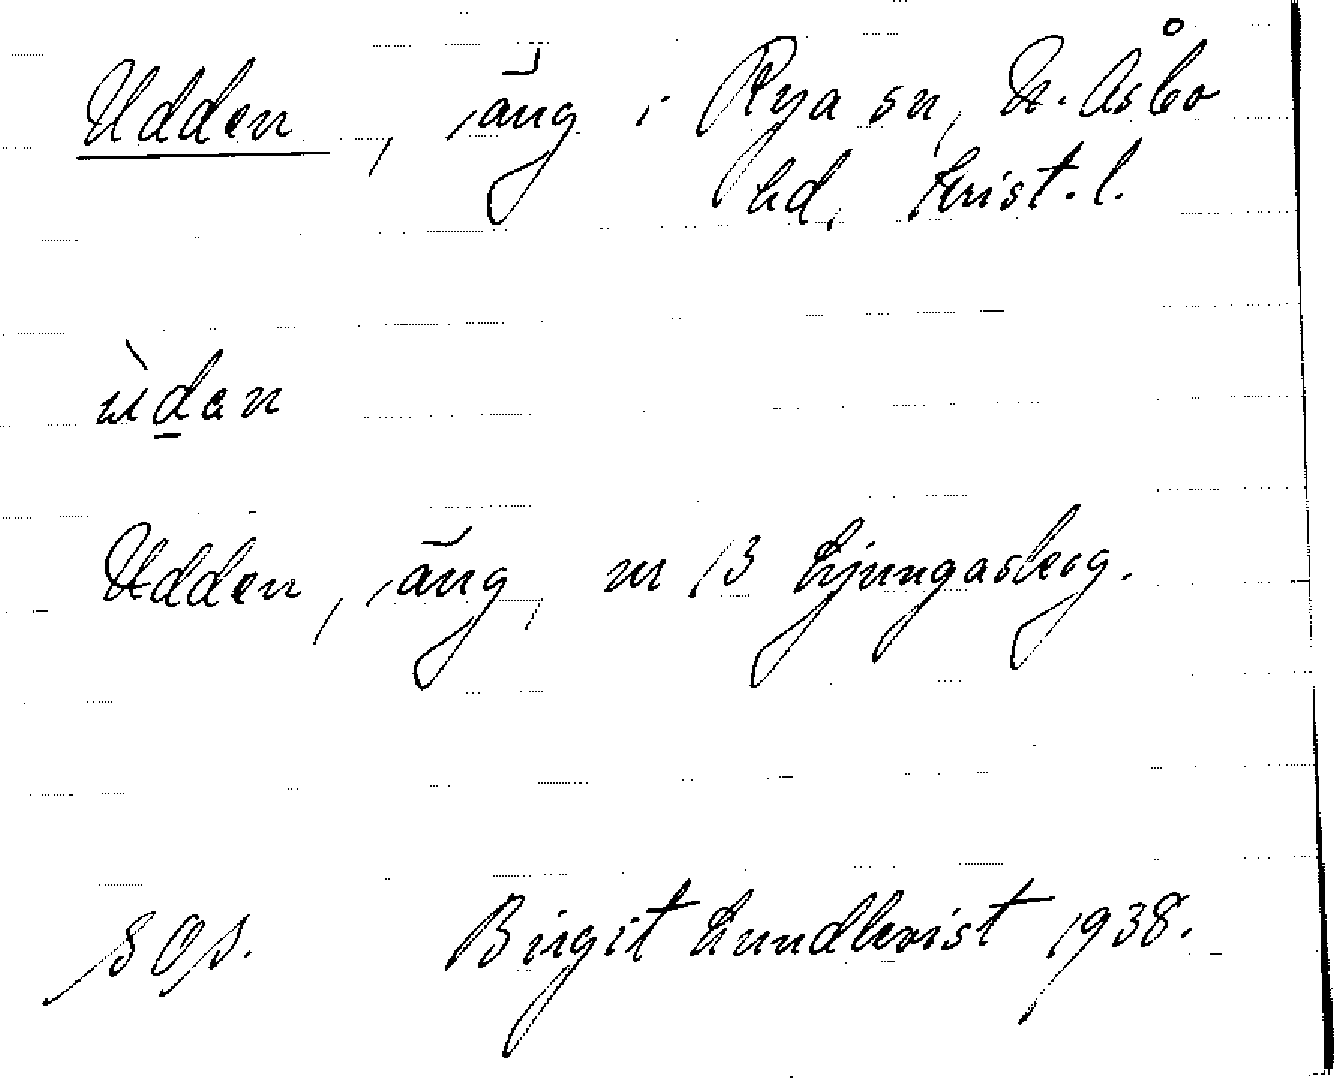 Udden, äng i Rya sn, N. Åsbo
hd, Krist. l.
ùdan
Udden, äng, nr 13 Ljungasberg.
SOA. Birgit Lundkvist 1938.